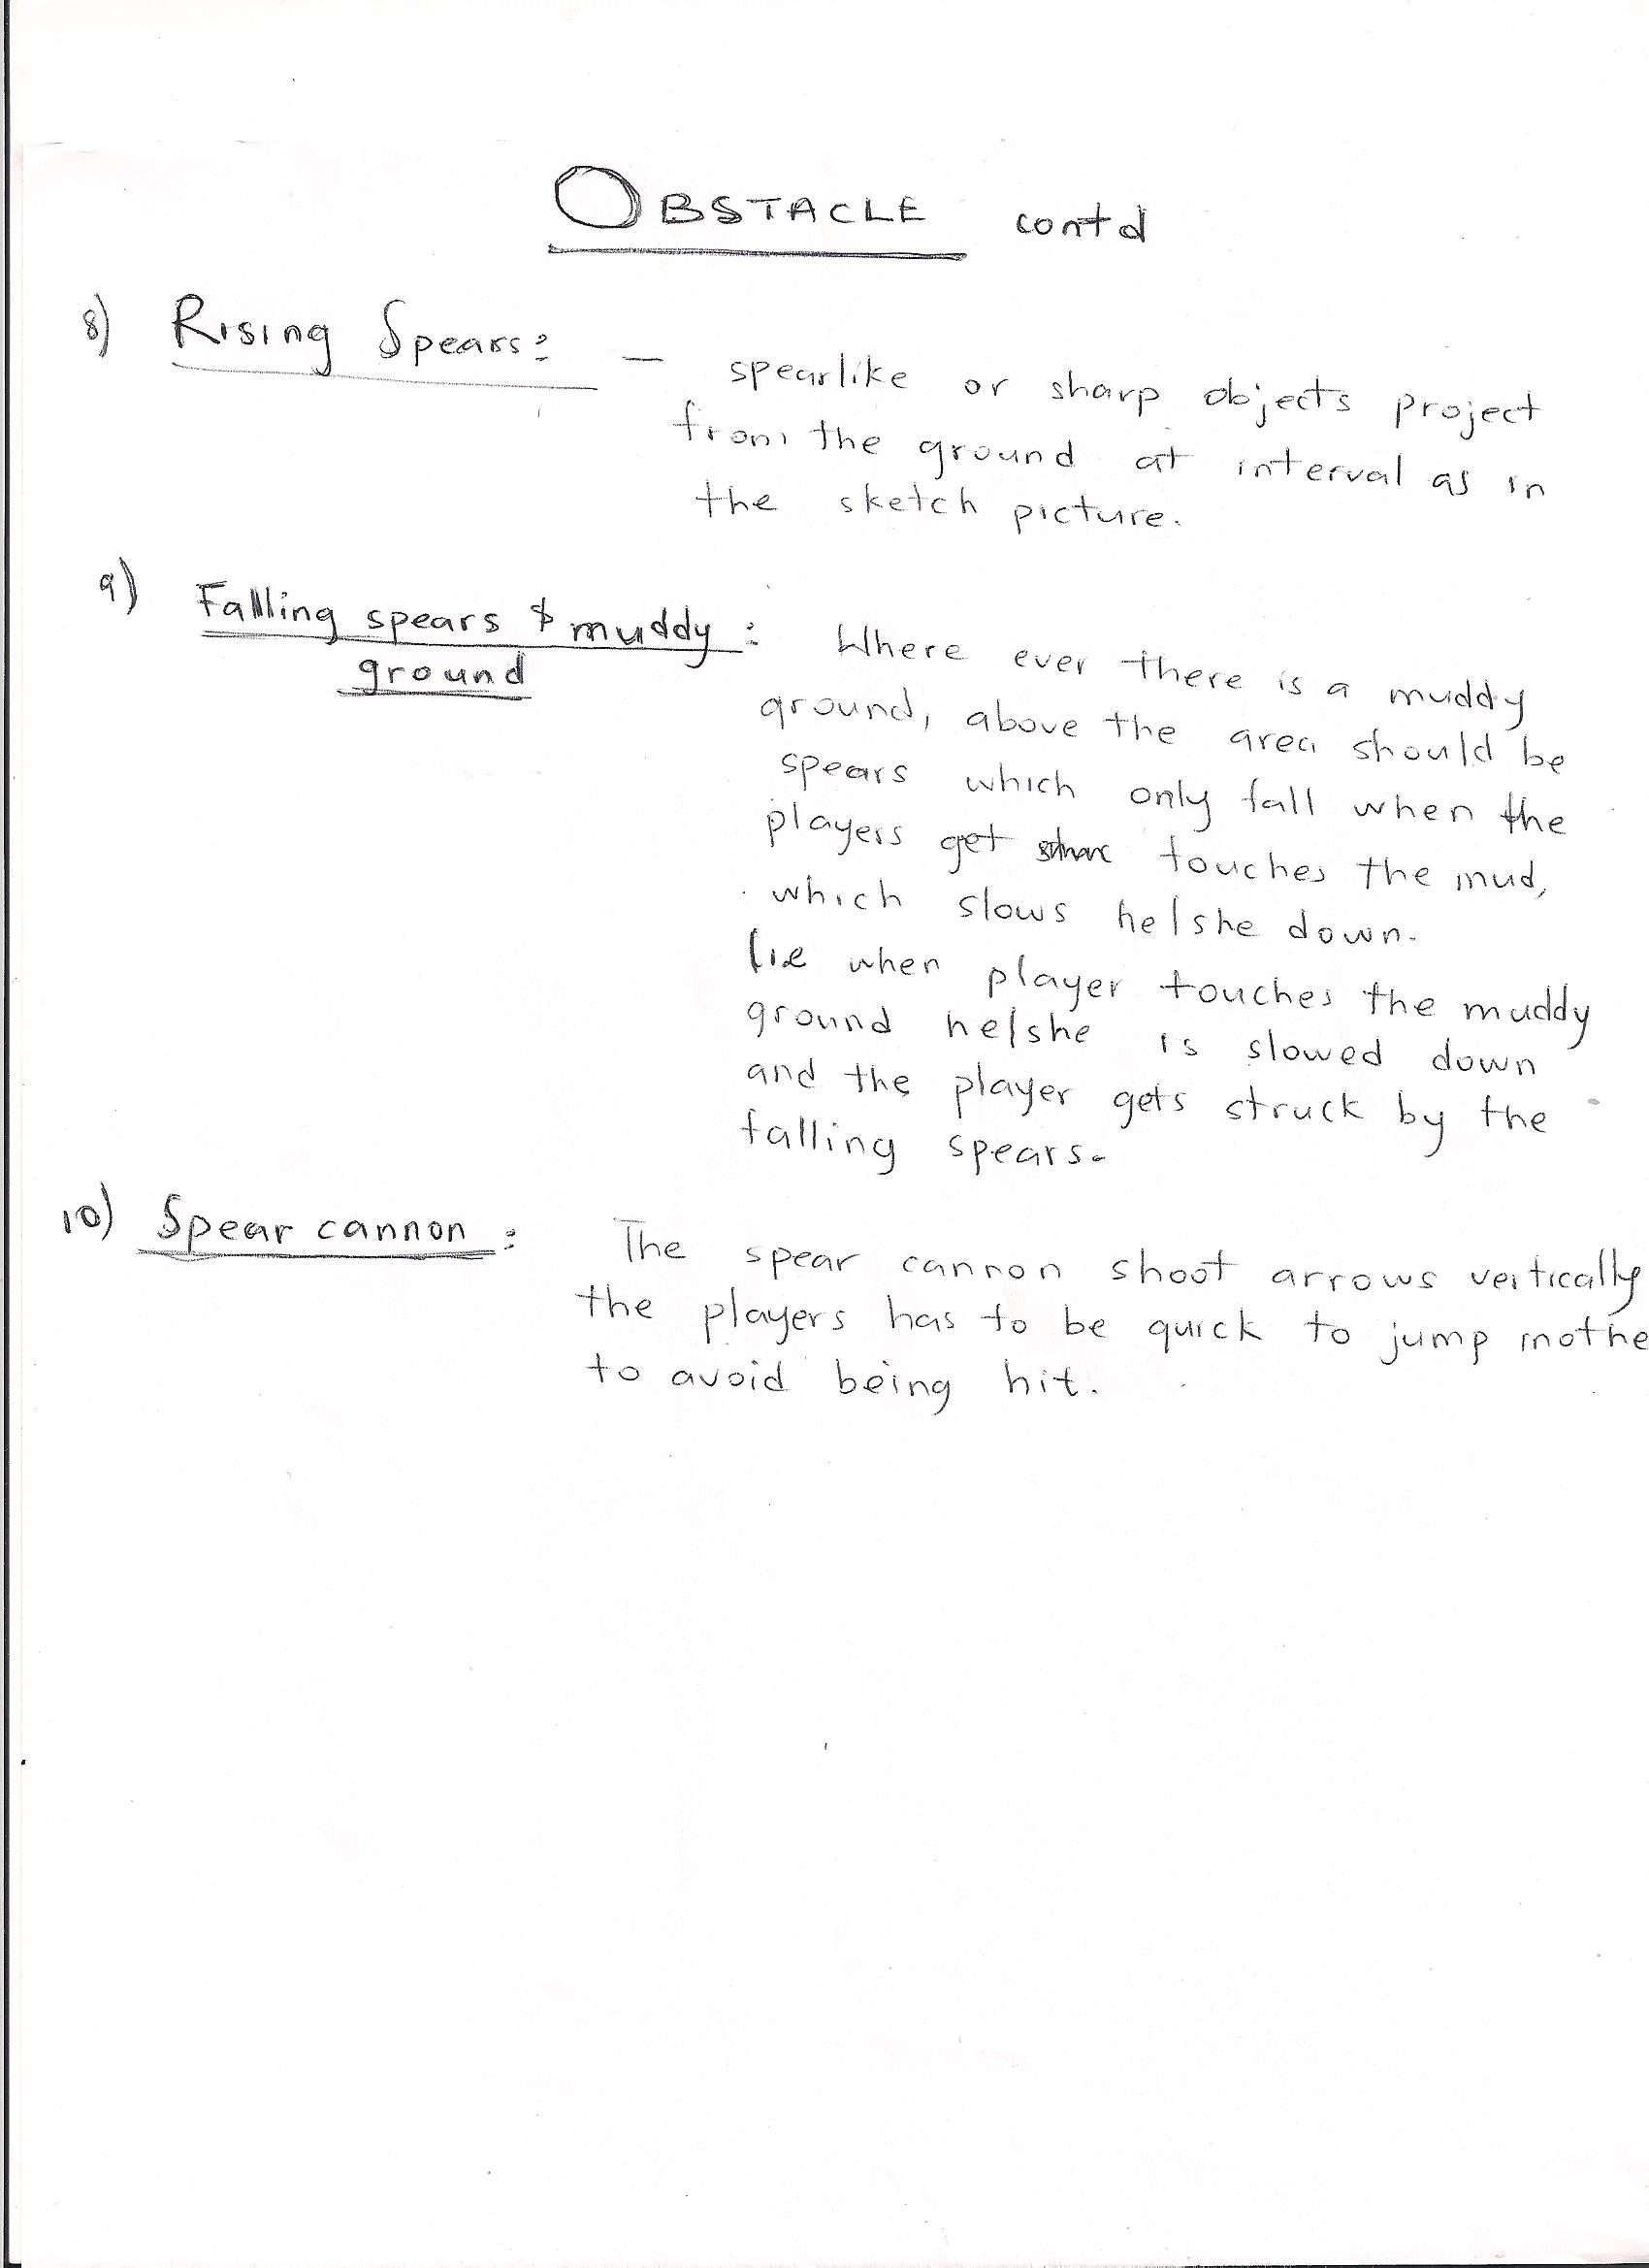 OBSTACLE contd
8) Rising Spears: - spearlike or sharp objects project
from the ground at interval as in
the sketch picture.
9) Falling spears & muddy ground : Where ever there is a muddy
ground, above the area should be
spears which only fall when the
players get touches the mud,
which slows he/she down.
(ie when player touches the muddy
ground he/she is slowed down
and the player gets struck by the
falling spears.
10) Spear cannon : The spear cannon shoot arrows vertically
the players has to be quick to jump inothe
to avoid being hit.